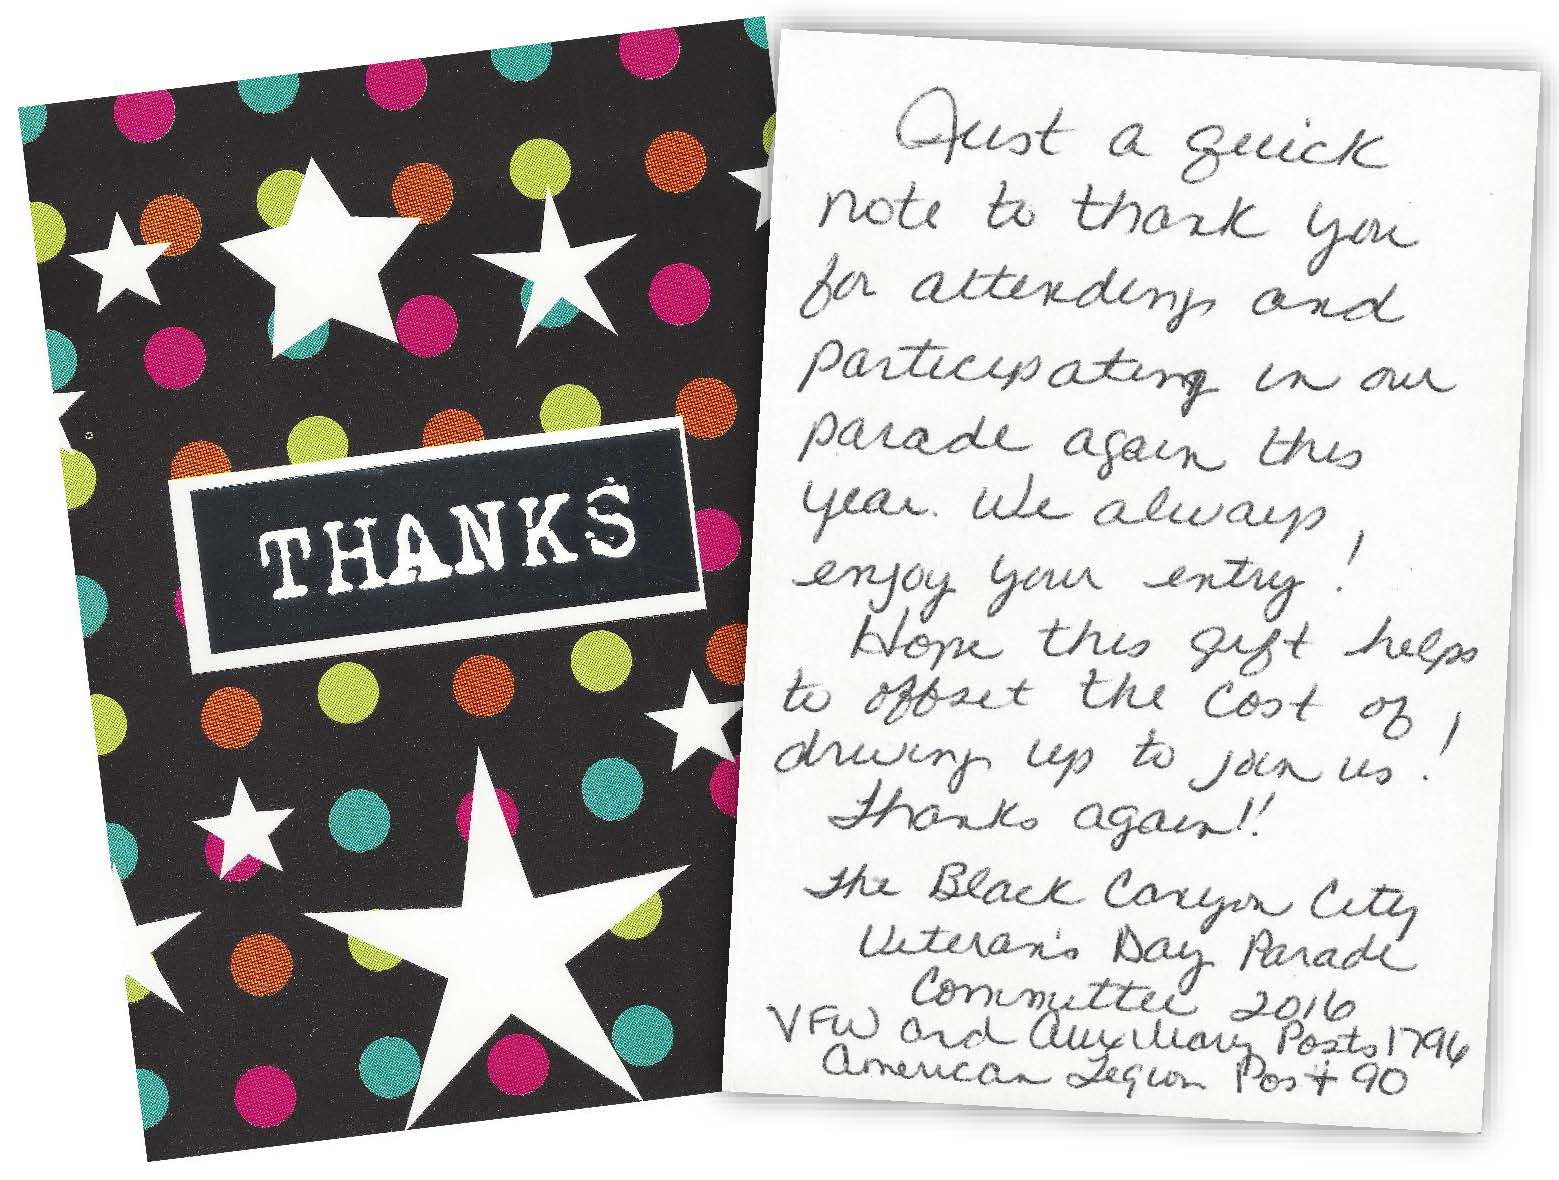 THANKS
Just a quick
note to thank you
for attending and
participating in our
parade again this
year. We always
enjoy your entry!
Hope this gift helps
to offset the cost of
driving up to join us!
Thanks again!!
The Black Canyon City
Veteran's Day Parade
Committee 2016
VFW and Auxiliary Posts 1796
American Legion Post 90